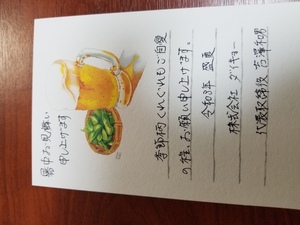 暑中お見舞い
申し上げます
季節柄くれぐれもご自愛
の程、お願い申し上げます。
令和3年 盛夏
株式会社 ダイキョー
代表取締役 吉澤和男